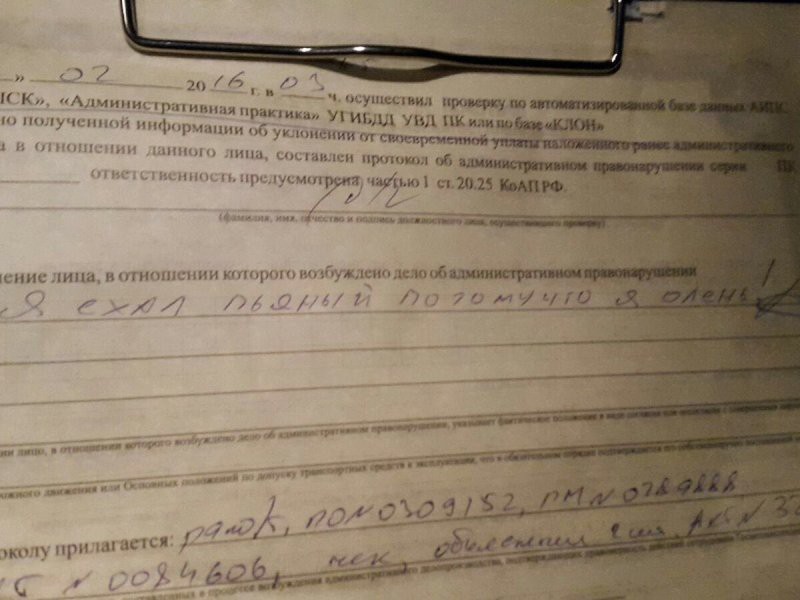 » 02 2016 г. в 03 ч. осуществил проверку по автоматизированной базе данных АИПС
ПСК», «Административная практика» УГИБДД УВД ПК или по базе «КЛОН»
но полученной информации об уклонении от своевременной уплаты наложенного ранее административного
а в отношении данного лица, составлен протокол об административном правонарушении серии ПК
ответственность предусмотрена частью 1 ст. 20.25 КоАП РФ.
(фамилия, имя, отчество и подпись должностного лица, осуществляющего проверку)
нение лица, в отношении которого возбуждено дело об административном правонарушении
я ехал пьяный потому что я олень!
нии лицо, в отношении которого возбуждено дело об административном правонарушении, указывает фактические положения в виде согласия или несогласия с
орожного движения или Основных положений по допуску транспортных средств к эксплуатации, что в обязательном порядке подтверждается
околу прилагается: рапорт, ПО N 0309152, ПМ N 0789888
N 0084606, чек, объяснения 2 шт. Акт N
в процессе возбуждения административного делопроизводства, подтверждающих правомерность действий сотрудника